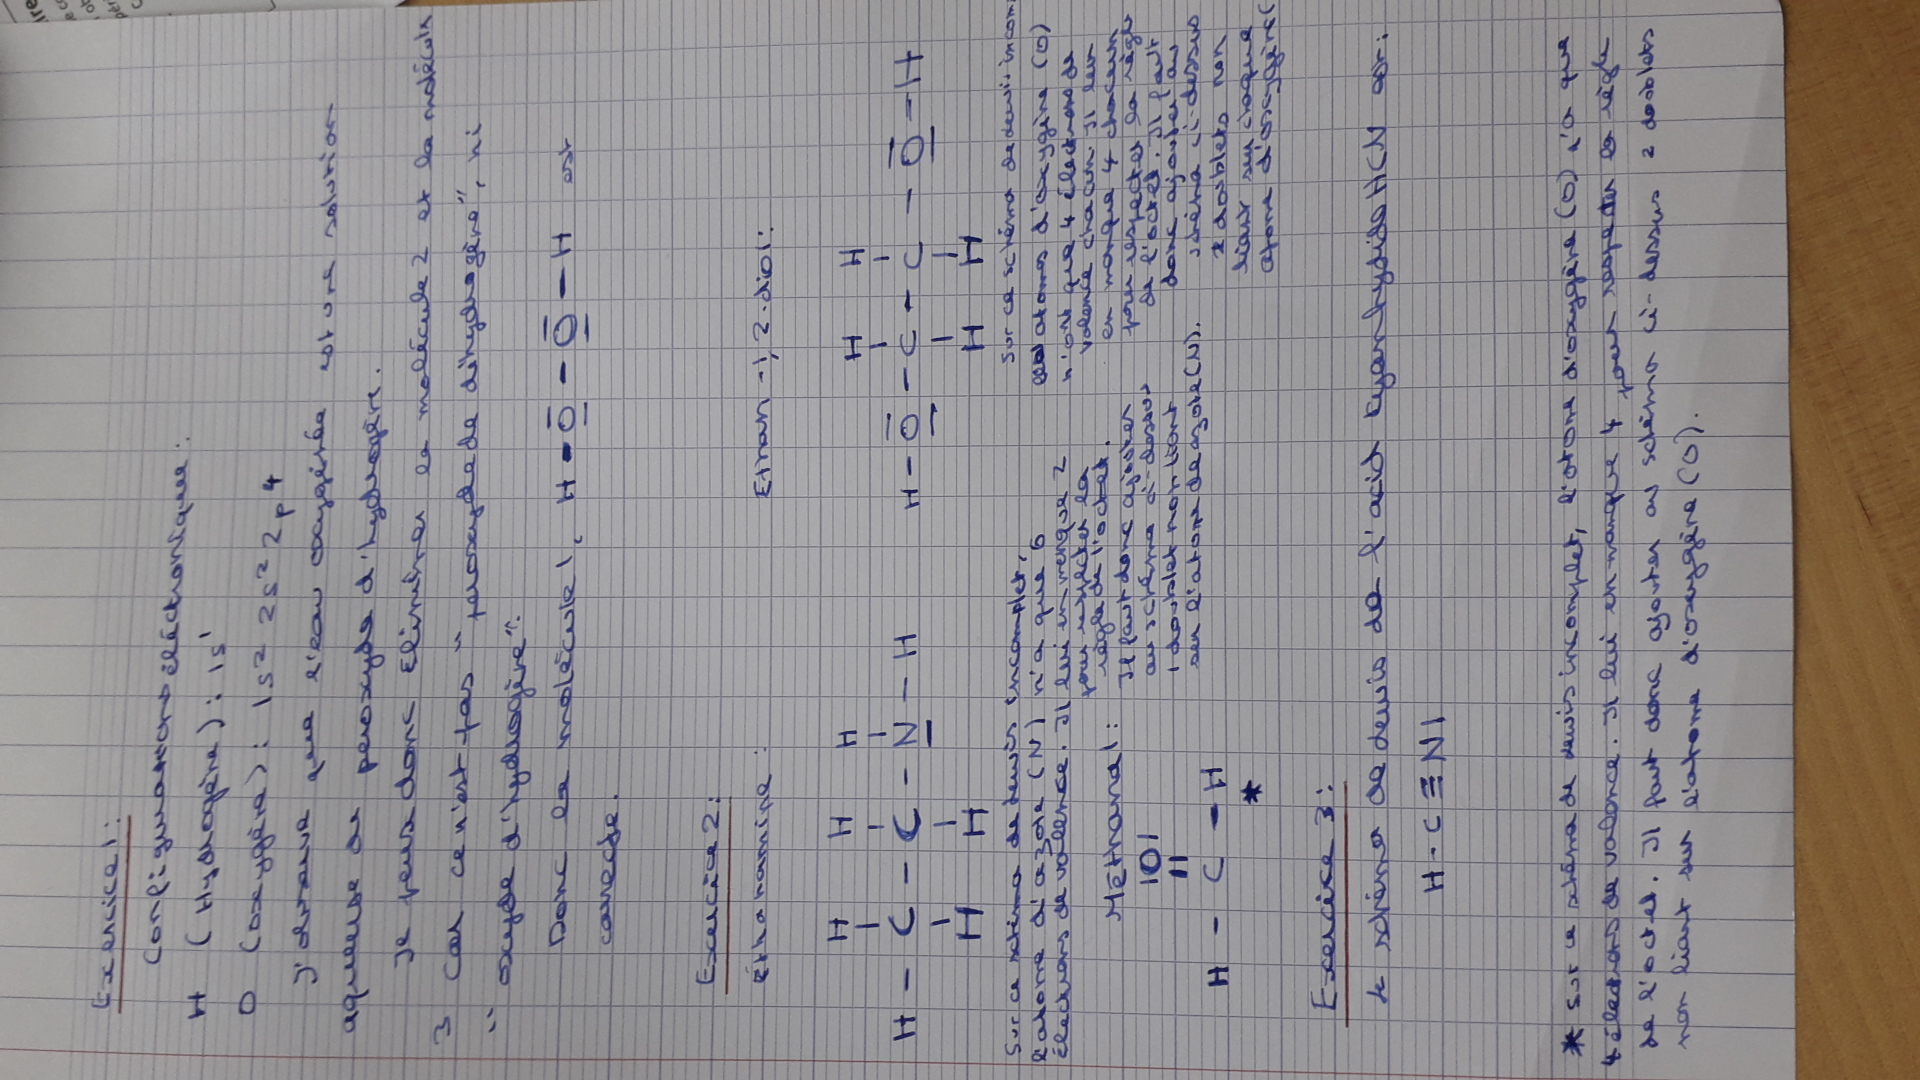 Exercice 1:
Configurations éléctronique:
H (Hydrogène): 1s¹
O (oxygène): 1s² 2s² 2p⁴
J'observe que l'eau oxygénée est une solution
aqueuse de peroxyde d'hydrogène.
Je peux donc éliminer la molécule 2 et la molécule
3 car ce n'est pas "peroxyde de dihydrogène", ni
"oxyde d'hydrogène".
Donc la molécule 1, H - O - O - H est
correcte.
Exercice 2:
éthanamine:
Ethan-1,2-diol:
H H H
H - C - C - N - H
H H
H H
H - O - C - C - O - H
H H
Sur ce schéma de Lewis incomplet,
l'atome d'azote (N) n'a que 6
électrons de valence. Il lui en manque 2
pour respecter la
règle de l'octet.
Il faut donc ajouter
au schéma ci-dessus
1 doublet non liant
sur l'atome de azote (N).
Sur ce schéma de Lewis incom
atomes d'oxygène (O)
n'ont que 4 électrons de
valence chacun. Il leur
en manque 4 chacun
pour respecter la règle
de l'octet. Il faut
donc ajouter au
schéma ci-dessus
2 doublets non
liant sur chaque
atome d'oxygène (
Méthanal:
|O|
||
H - C - H
*
Exercice 3:
Le schéma de Lewis de l'acid HCN est:
H - C ≡ N|
* Sur ce schéma de Lewis incomplet, l'atome d'oxygène (O) n'a que
4 électrons de valence. Il lui en manque 4 pour respecter la règle
de l'octet. Il faut donc ajouter au schéma ci-dessus 2 doublets
non liant sur l'atome d'oxygène (O).